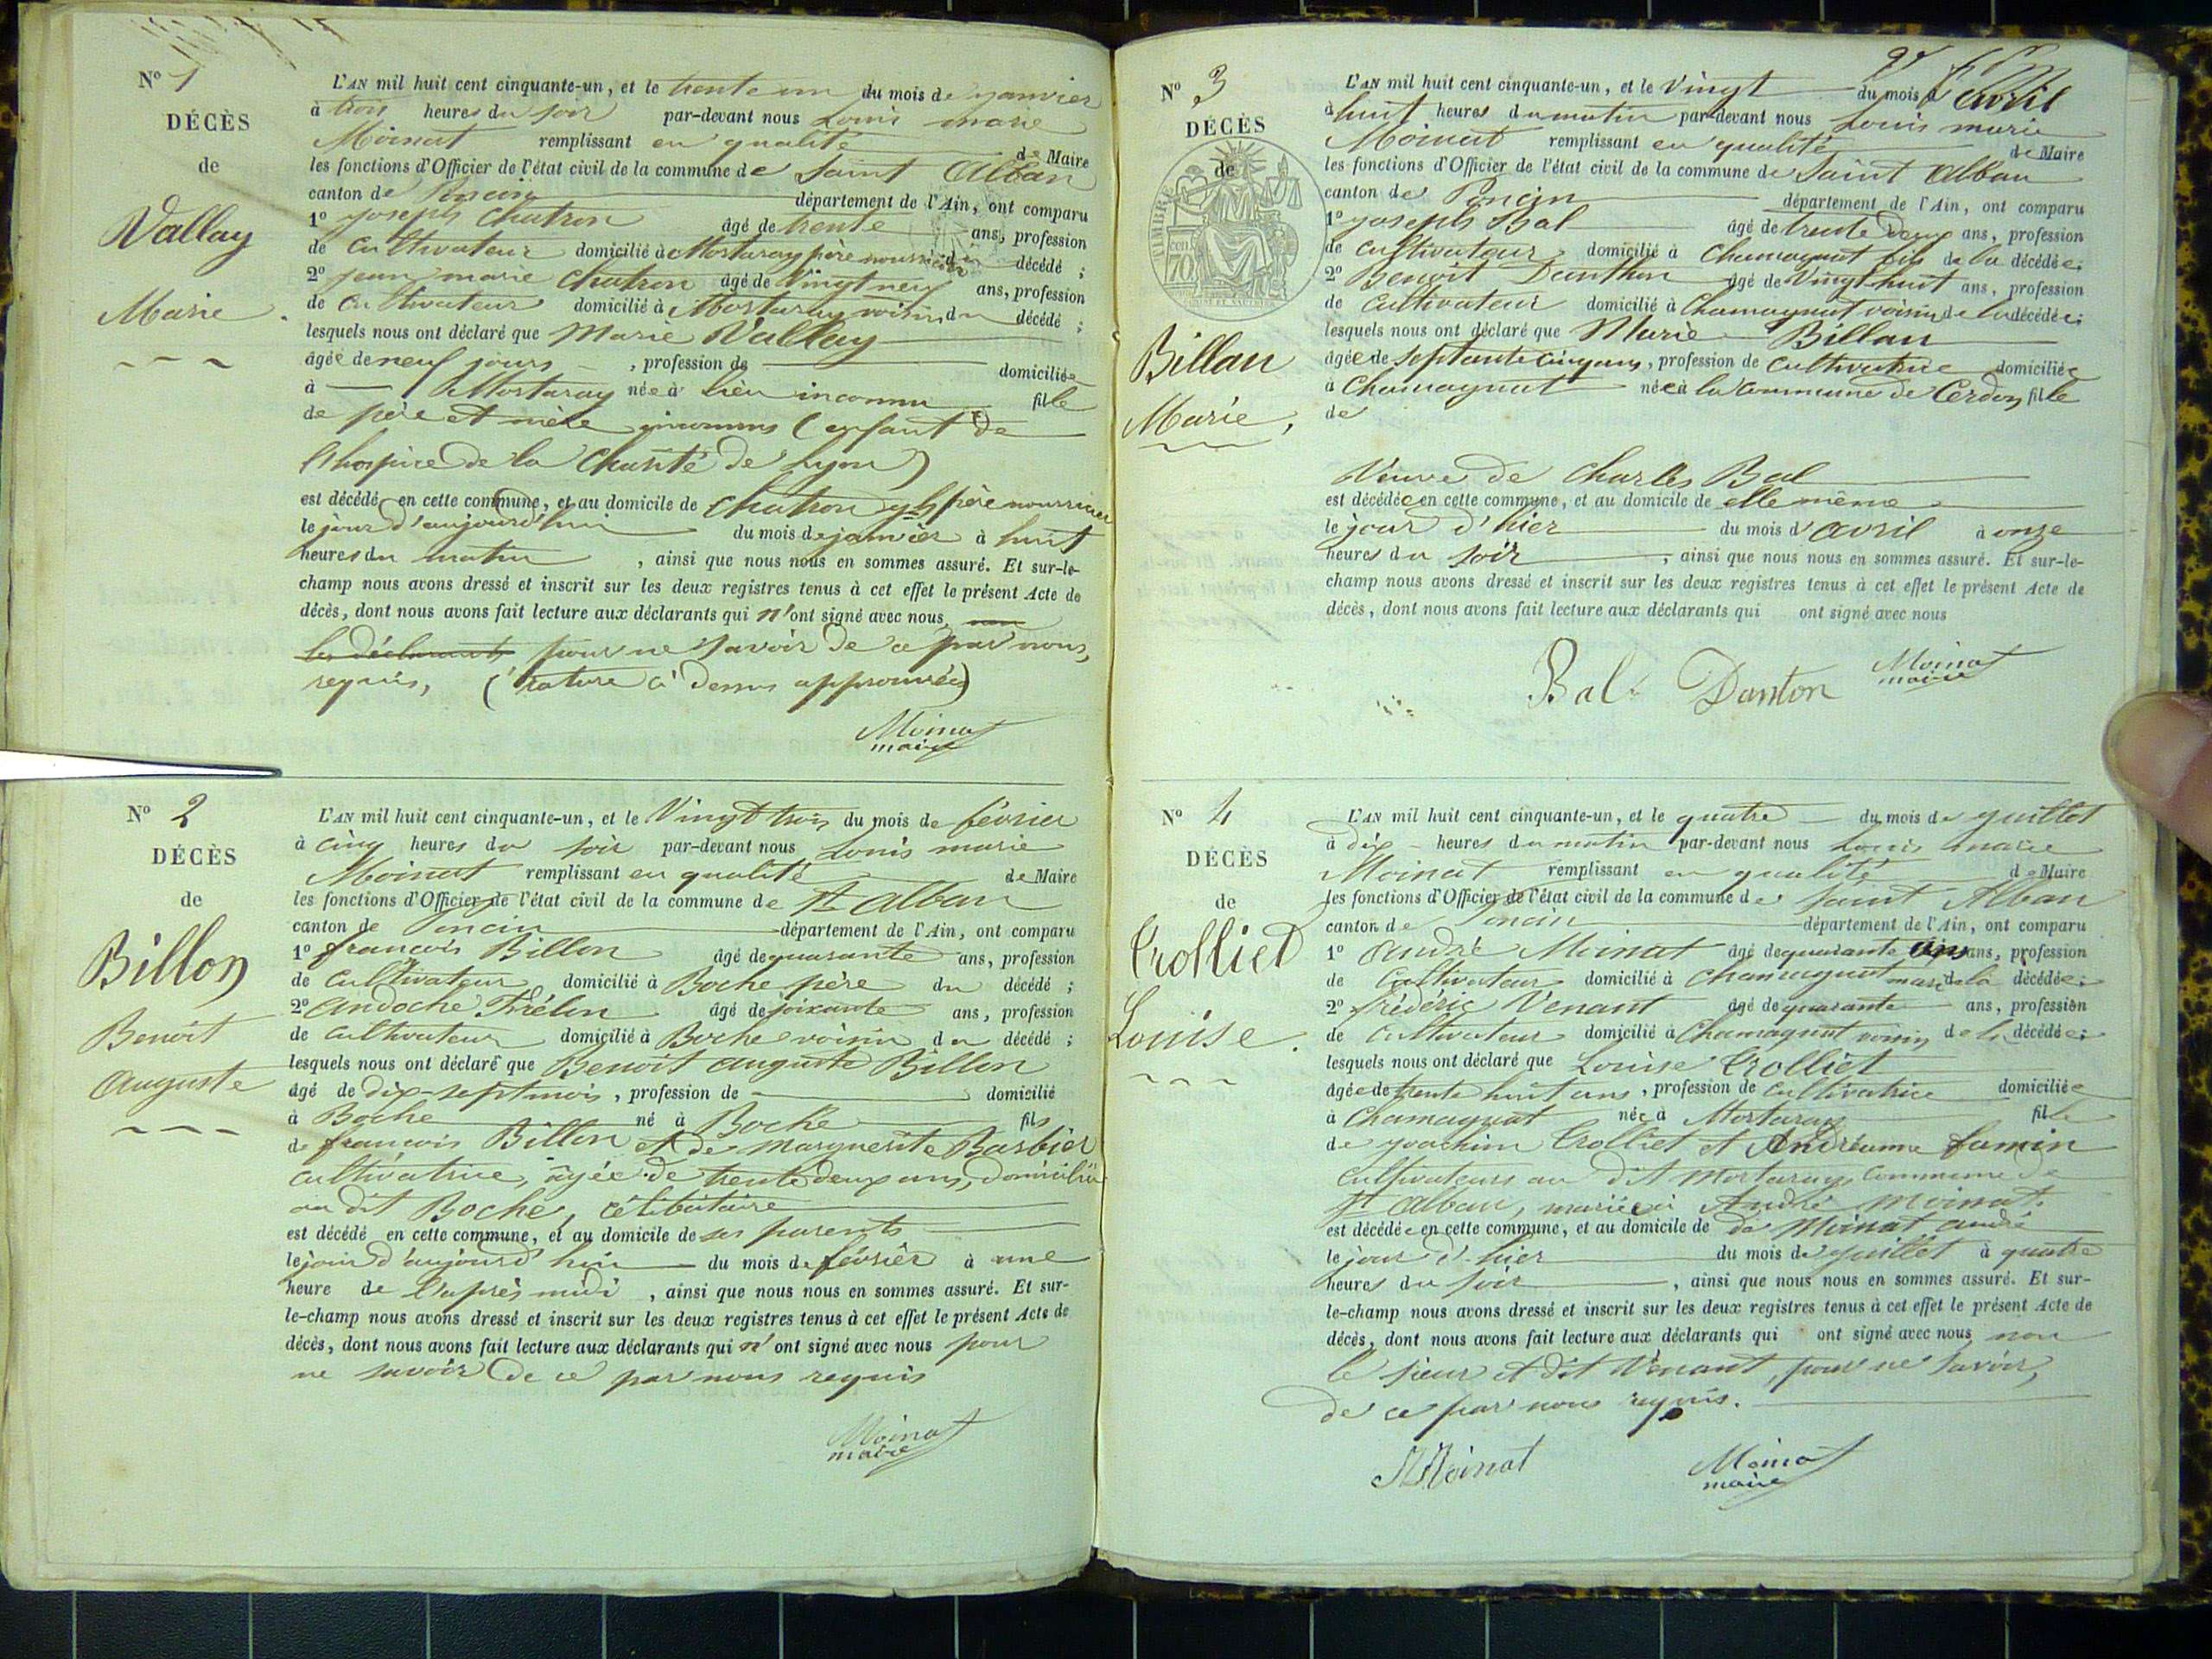 N° 1
DÉCÈS
de
Vallay
Marie
L'AN mil huit cent cinquante-un, et le trente un du mois de janvier
à trois heures du soir par-devant nous Louis marie
Moinat remplissant en qualité de Maire
les fonctions d'Officier de l'état civil de la commune de Saint Alban
canton de Poncin département de l'Ain, ont comparu
1° joseph Chatron âgé de trente ans, profession
de cultivateur domicilié à Mortaray père nourricier du décédé ;
2° jean marie Chatron âgé de Vingt neuf ans, profession
de cultivateur domicilié à Mortaray voisin du décédé ;
lesquels nous ont déclaré que Marie Vallay
âgée de neuf jours , profession de domiciliée
à Mortaray née à lieu inconnu fille
de père et mère inconnus (enfant de
l'hospice de la Charité de Lyon)
est décédé en cette commune, et au domicile de Chatron jph père nourricier
le jour d'aujourd'hui du mois de janvier à huit
heures du matin , ainsi que nous nous en sommes assuré. Et sur-le-
champ nous avons dressé et inscrit sur les deux registres tenus à cet effet le présent Acte de
décès, dont nous avons fait lecture aux déclarants qui n'ont signé avec nous
les déclarants pour ne savoir de ce par nous
requis, (rature ci dessus approuvée)
Moinat
maire
N° 2
DÉCÈS
de
Billon
Benoit
auguste
L'AN mil huit cent cinquante-un, et le Vingt trois du mois de février
à cinq heures du soir par-devant nous Louis marie
Moinat remplissant en qualité de Maire
les fonctions d'Officier de l'état civil de la commune de St alban
canton de Poncin département de l'Ain, ont comparu
1° françois Billon âgé de quarante ans, profession
de cultivateur domicilié à Boche père du décédé ;
2° andoche Frélin âgé de soixante ans, profession
de cultivateur domicilié à Boche voisin du décédé ;
lesquels nous ont déclaré que Benoit auguste Billon
âgé de dix-sept mois , profession de domicilié
à Boche né à Boche fils
de françois Billon et de marguerite Barbier
cultivatrice, âgée de trente deux ans, domiciliée
au dit Boche, célibataire
est décédé en cette commune, et au domicile de ses parents
le jour d'aujourd'hui du mois de février à une
heure de l'après midi , ainsi que nous nous en sommes assuré. Et sur-
le-champ nous avons dressé et inscrit sur les deux registres tenus à cet effet le présent Acte de
décès, dont nous avons fait lecture aux déclarants qui n' ont signé avec nous pour
ne savoir de ce par nous requis
Moinat
maire
N° 3
DÉCÈS
de
TIMBRE
Billan
Marie,
L'AN mil huit cent cinquante-un, et le Vingt du mois d'avril
à huit heures du matin par-devant nous Louis marie
Moinat remplissant en qualité de Maire
les fonctions d'Officier de l'état civil de la commune de Saint alban
canton de Poncin département de l'Ain, ont comparu
1° joseph Bal âgé de trente deux ans, profession
de cultivateur domicilié à Chamagnat fils de la décédée ;
2° Benoit Danthon âgé de Vingt huit ans, profession
de cultivateur domicilié à Chamagnat voisin de la décédée ;
lesquels nous ont déclaré que Marie Billan
âgée de septante cinq ans, profession de cultivatrice domiciliée
à Chamagnat née à la commune de Cerdon fille
de
Veuve de Charles Bal
est décédée en cette commune, et au domicile de elle même
le jour d'hier du mois d'avril à onze
heures du soir , ainsi que nous nous en sommes assuré. Et sur-le-
champ nous avons dressé et inscrit sur les deux registres tenus à cet effet le présent Acte de
décès, dont nous avons fait lecture aux déclarants qui ont signé avec nous
Bal Danton Moinat
maire
N° 4
DÉCÈS
de
Crolliet
Louise.
L'AN mil huit cent cinquante-un, et le quatre du mois de juillet
à dix heures du matin par-devant nous Louis marie
Moinat remplissant en qualité de Maire
les fonctions d'Officier de l'état civil de la commune de Saint Alban
canton de Poncin département de l'Ain, ont comparu
1° André Moinat âgé de quarante ans, profession
de cultivateur domicilié à Chamagnat mari de la décédée ;
2° frédéric Venant âgé de quarante ans, profession
de cultivateur domicilié à Chamagnat voisin de la décédée ;
lesquels nous ont déclaré que Louise Crolliet
âgée de trente huit ans , profession de cultivatrice domiciliée
à Chamagnat née à Mortaray fille
de joachim Crolliet et Andréanne famin
cultivateurs au dit mortaray commune de
St alban, mariée à André moinat.
est décédée en cette commune, et au domicile de de Moinat andré
le jour d'hier du mois de juillet à quatre
heures du soir , ainsi que nous nous en sommes assuré. Et sur-
le-champ nous avons dressé et inscrit sur les deux registres tenus à cet effet le présent Acte de
décès, dont nous avons fait lecture aux déclarants qui ont signé avec nous non
le sieur et dit Venant, pour ne savoir,
de ce par nous requis.
Moinat Moinat
maire